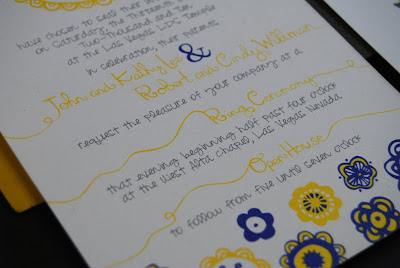 have chosen to seal their
on Saturday, the Thirteenth
Two-Thousand and Ten
at the Las Vegas LDS Temple
In celebration, their parents
John and Kathy Lee &
Robert and Cindy Willman
request the pleasure of your company at a
Ring Ceremony
that evening beginning half past four o'clock
at the West Alta Chapel, Las Vegas Nevada
Open House
to follow from five until seven o'clock